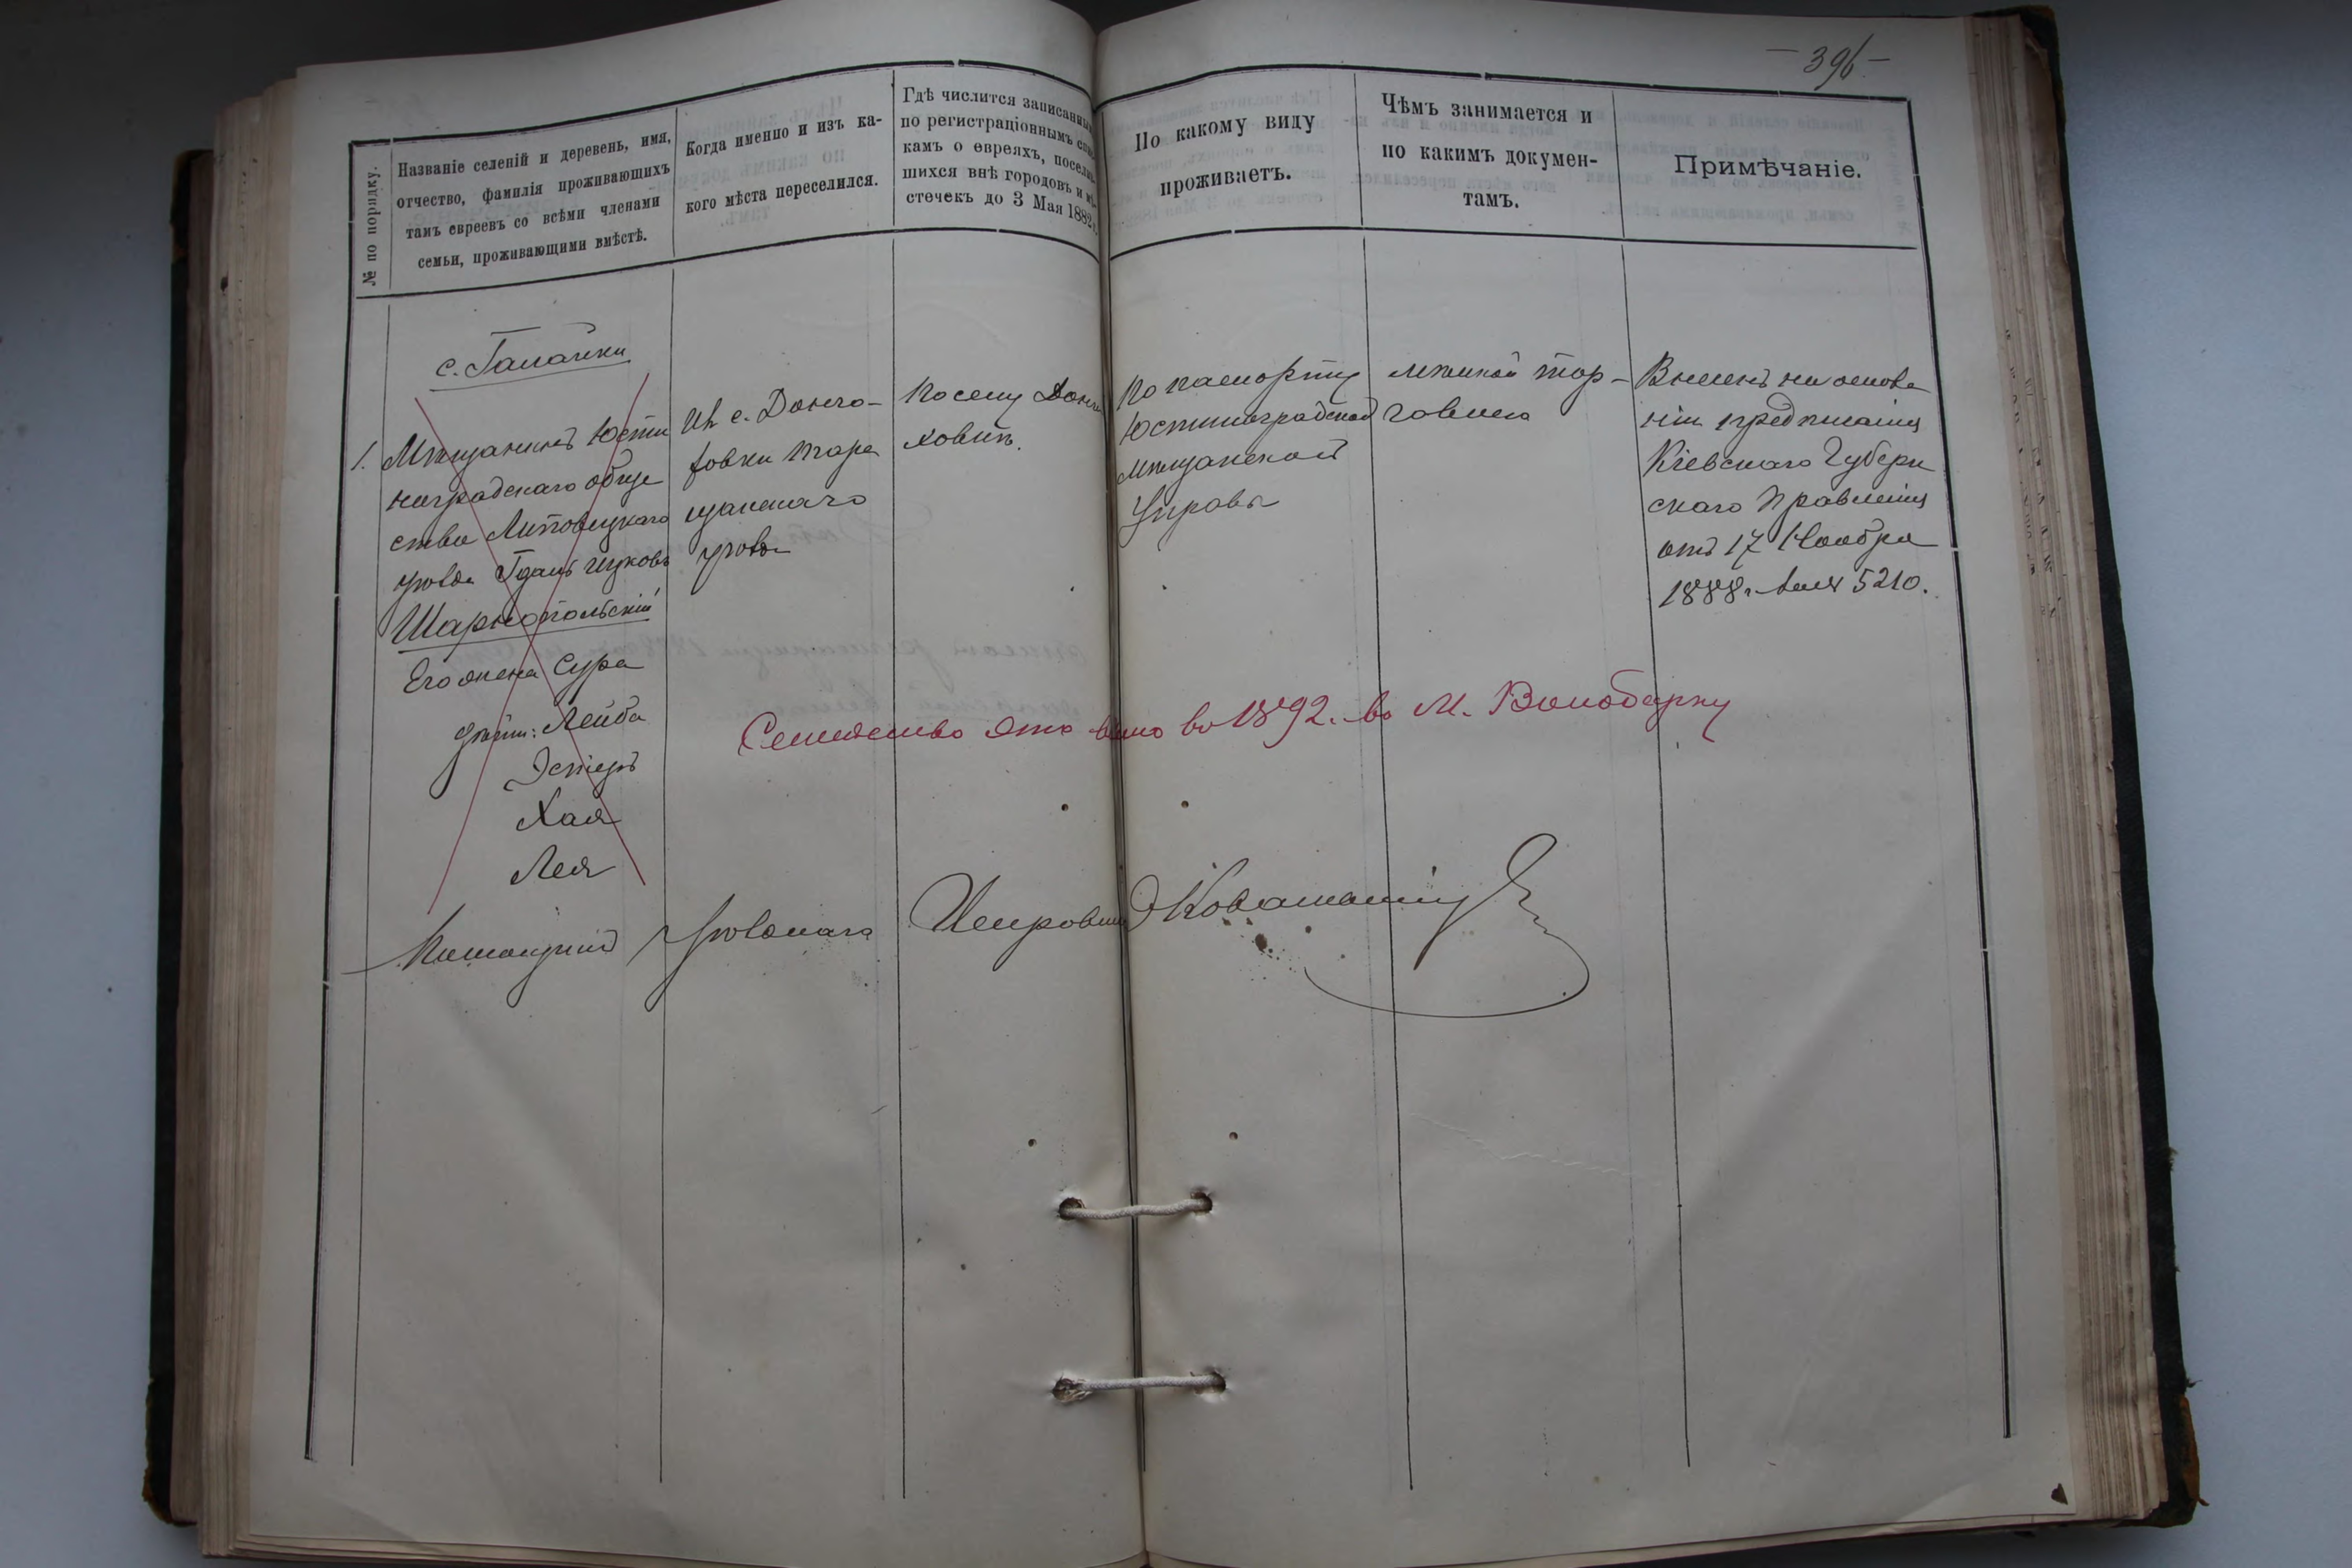 396
№ по порядку.
Названіе селеній и деревень, имя,
отчество, фамилія проживающихъ
тамъ евреевъ со всѣми членами
семьи, проживающими вмѣстѣ.
Когда именно и изъ ка-
кого мѣста переселился.
Гдѣ числится записаннымъ
по регистраціоннымъ спис
камъ о евреяхъ, поселив
шихся внѣ городовъ и мѣ-
стечекъ до 3 Мая 1882 г.
По какому виду
проживаетъ.
Чѣмъ занимается и
по какимъ докумен-
тамъ.
Примѣчаніе.
с.
1. Мѣщанинъ Юсти
нградскаго обще
ства Липовецкаго
уѣзда
Шарнопольскій
Его жена Сура
дѣти: Лейба
Эстеръ
Хая
Лея
Изъ с.
Тара
щанскаго
уѣзда
По селу
По паспорту
Юстинградской
мѣщанской
Управы
мѣлкой тор-
говлею
Внесенъ на основа
ніи предписанія
Кіевскаго Губерн
скаго Правленія
отъ 17 Ноября
1888 г. за № 5210.
Семейство это въ 1892. въ м.
Уѣзднаго Исправника